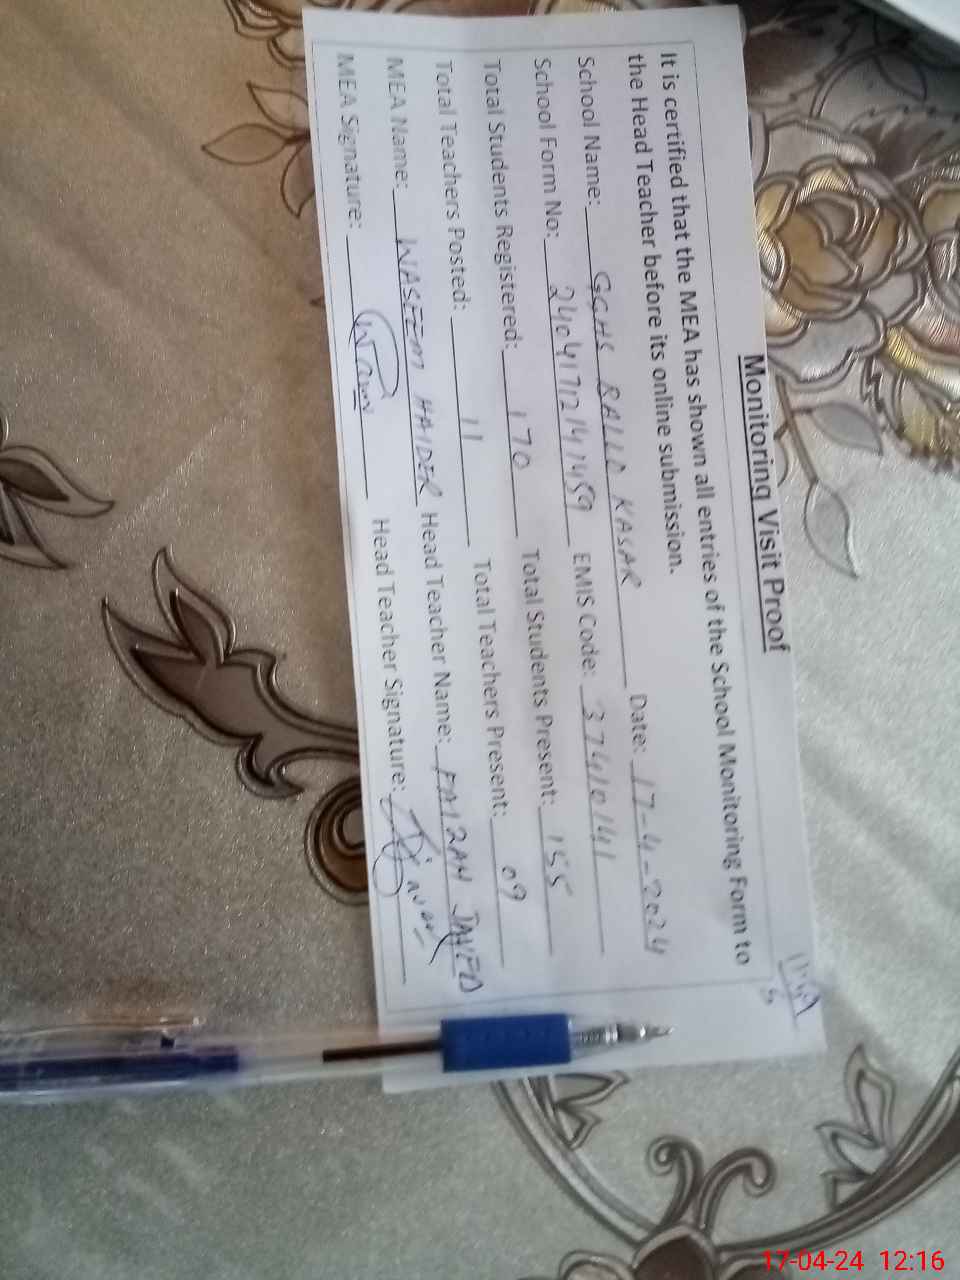 Monitoring Visit Proof
It is certified that the MEA has shown all entries of the School Monitoring Form to
the Head Teacher before its online submission.
School Name: GGHS BALLA KASAR Date: 17-4-2024
School Form No: 24041712141459 EMIS Code: 37410141
Total Students Registered: 170 Total Students Present: 155
Total Teachers Posted: 11 Total Teachers Present: 09
MEA Name: WASEEM HAIDER Head Teacher Name: FAIZAH JAVED
MEA Signature: Head Teacher Signature:
17-04-24 12:16